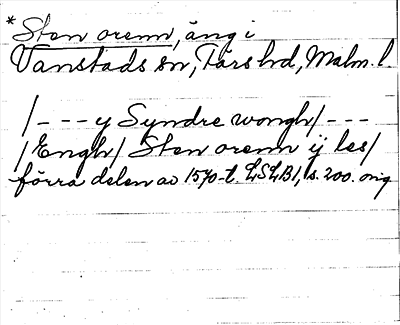 *Sten orenn, äng i
Vanstads sn, Färs hd, Malm. l.
/--- y Syndre wongh/---
/Engh/ Sten orenn ÿ les/
förra delen av 1570-t. LSLB1, s. 200. orig